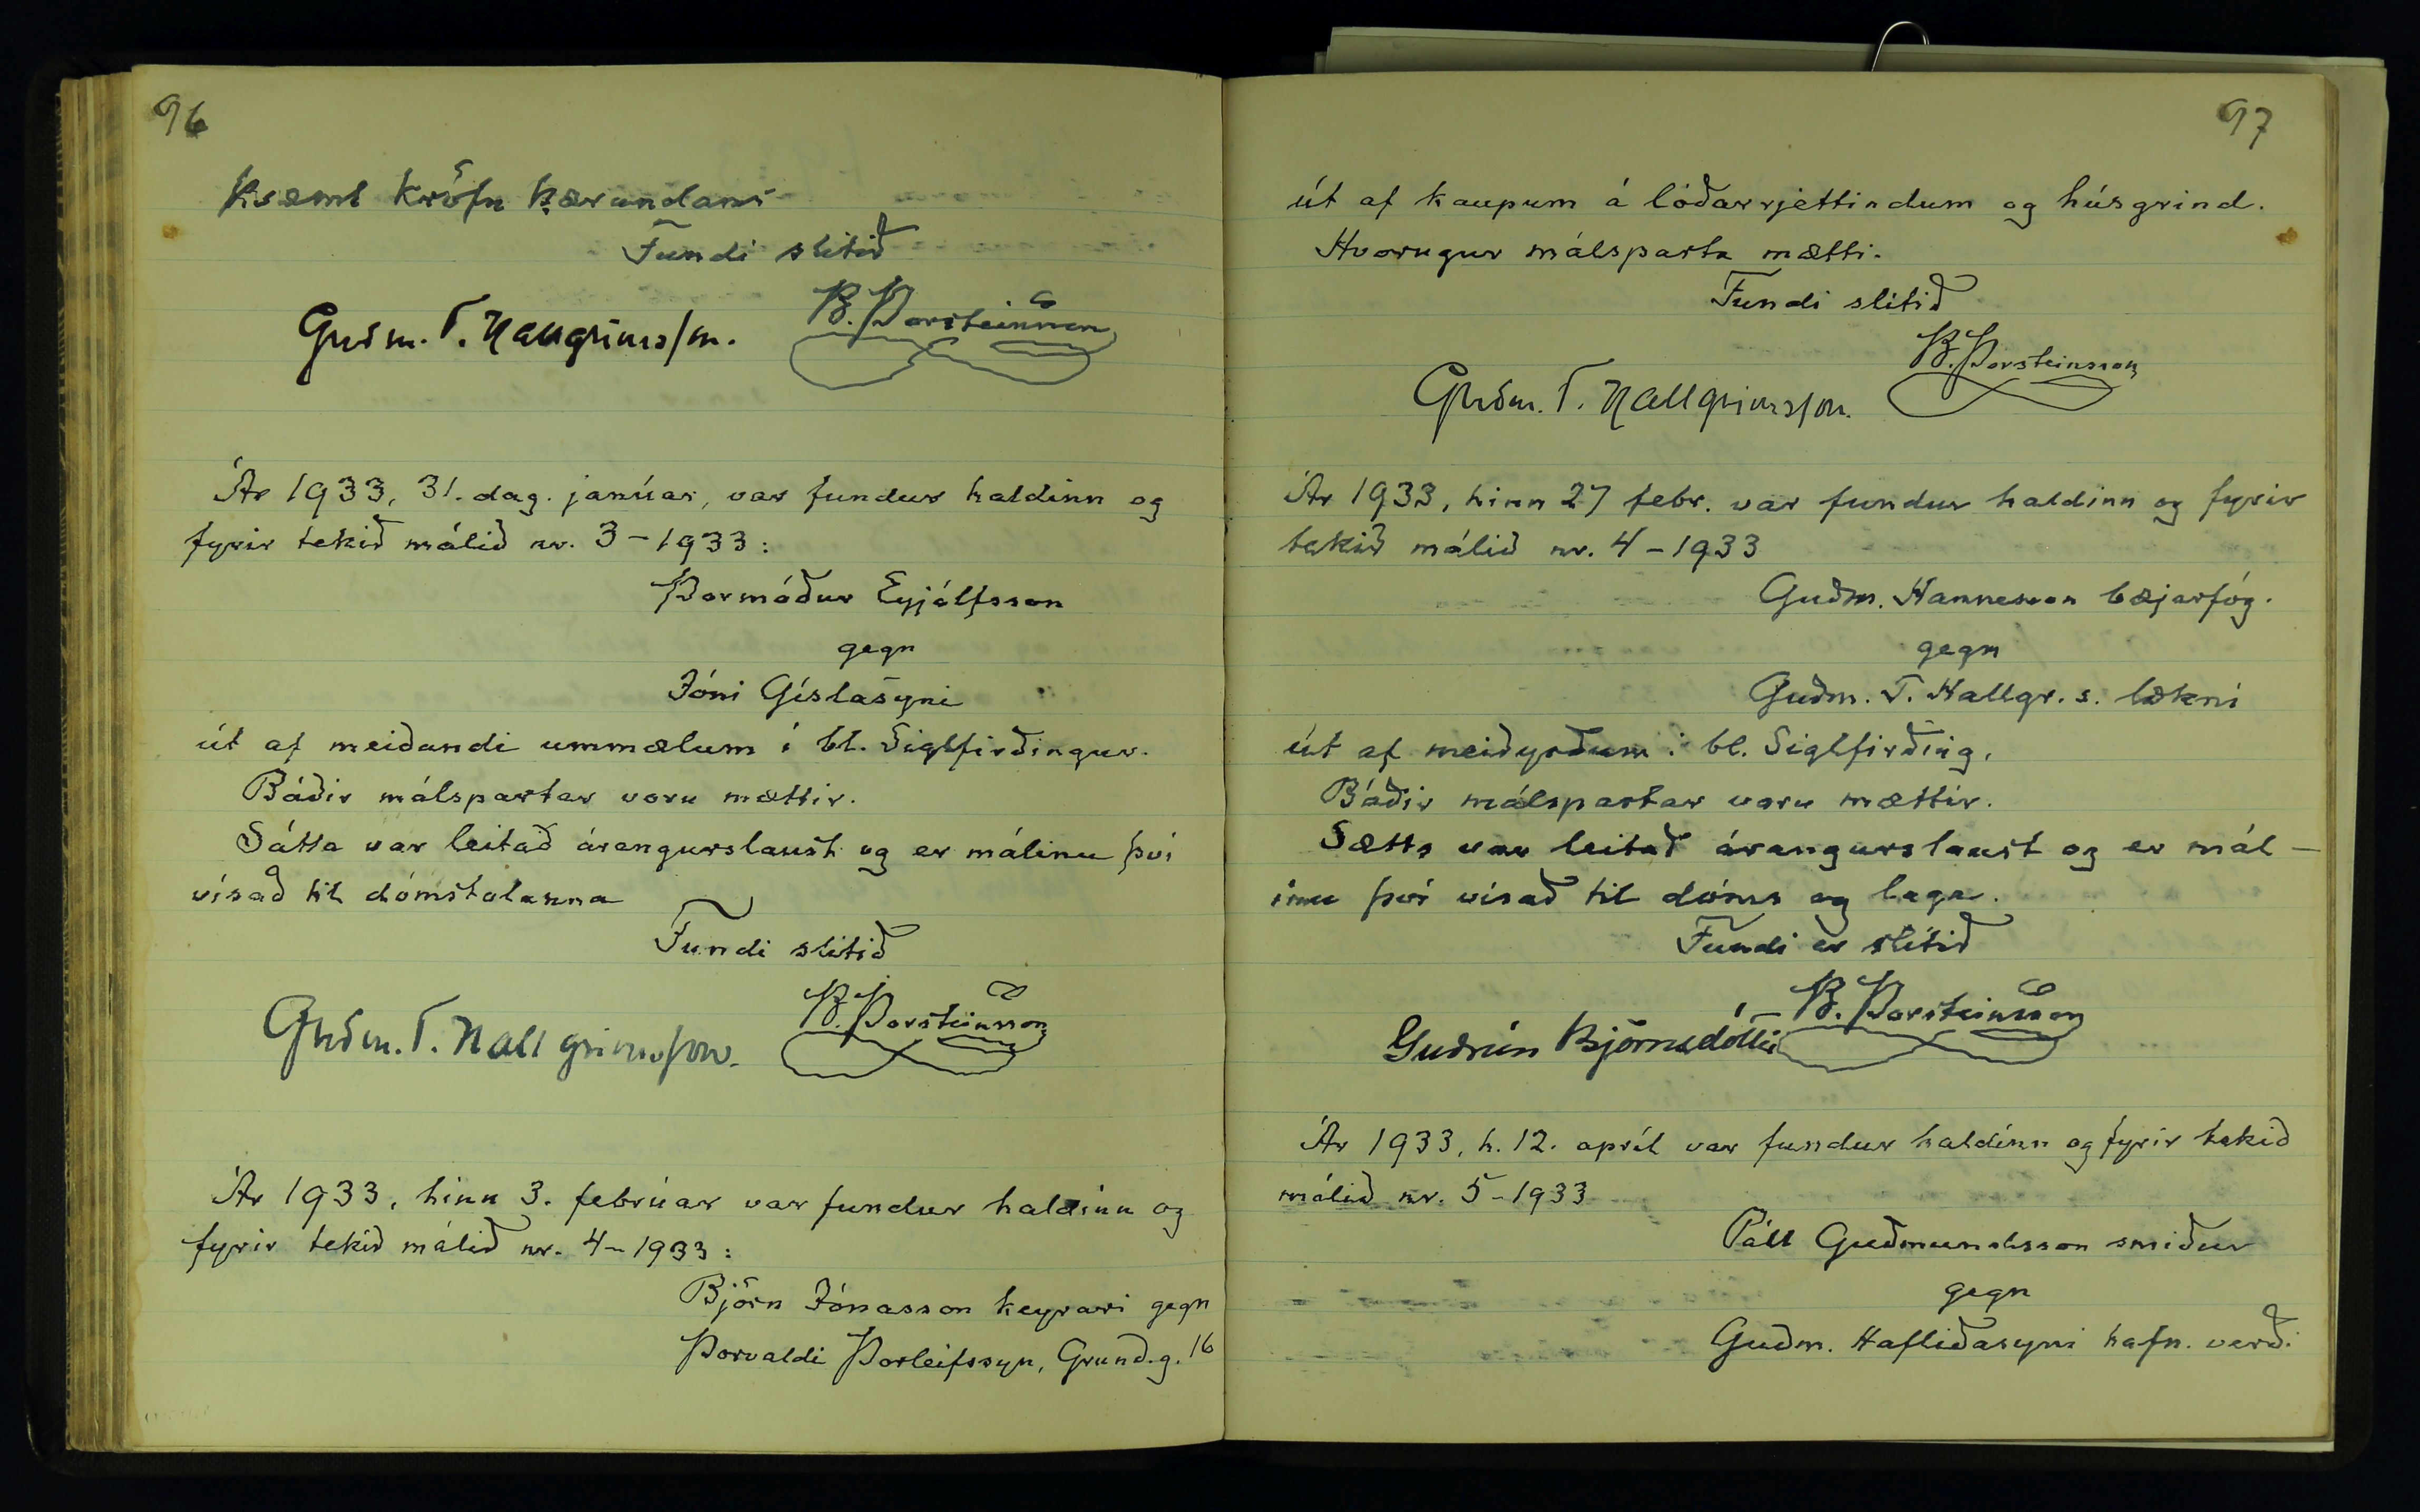 96
kvæmt kröfu kærandans
Fundi slitið
B. Þorsteinsson
Guðm. T. Hallgrímsson.
Ár 1933, 31. dag. janúar, var fundur haldinn og
fyrir tekið málið nr. 3-1933:
Þormóður Eyjólfsson
gegn
Jóni Gíslasyni
út af meiðandi ummælum í bl. Siglfirðingur.
Báðir málspartar voru mættir.
Sátta var leitað árangurslaust og er málinu því
vísað til dómstolanna
Fundi slitið
B. Þorsteinsson
Guðm. T. Hallgrímsson.
Ár 1933, hinn 3. febrúar var fundur haldinn og
fyrir tekið málið nr. 4-1933:
Björn Jónasson keyrari gegn
Þorvaldi Þorleifssyn, Grund.g. 16
97
út af kaupum á lóðarrjettindum og húsgrind.
Hvorugur málsparta mætti.
Fundi slitið
B. Þorsteinsson
Guðm. T. Hallgrímsson.
Ár 1933, hinn 27 febr. var fundur haldinn og fyrir
tekið málið nr. 4-1933
Guðm. Hannesson bæjarfóg.
gegn
Guðm. T. Hallgr. s. lækni
út af meiðyrðum í bl. Siglfirðing.
Báðir málspartar voru mættir.
Sætta var leitað árangurslaust og er mál-
inu því vísað til dóms og laga.
Fundi er slitið
B. Þorsteinsson
Guðrún Björnsdóttir
Ár 1933, h. 12. apríl var fundur haldinn og fyrir tekið
málið nr. 5-1933
Páll Guðmundsson smiður
gegn
Guðm. Hafliðasyni hafn. verði